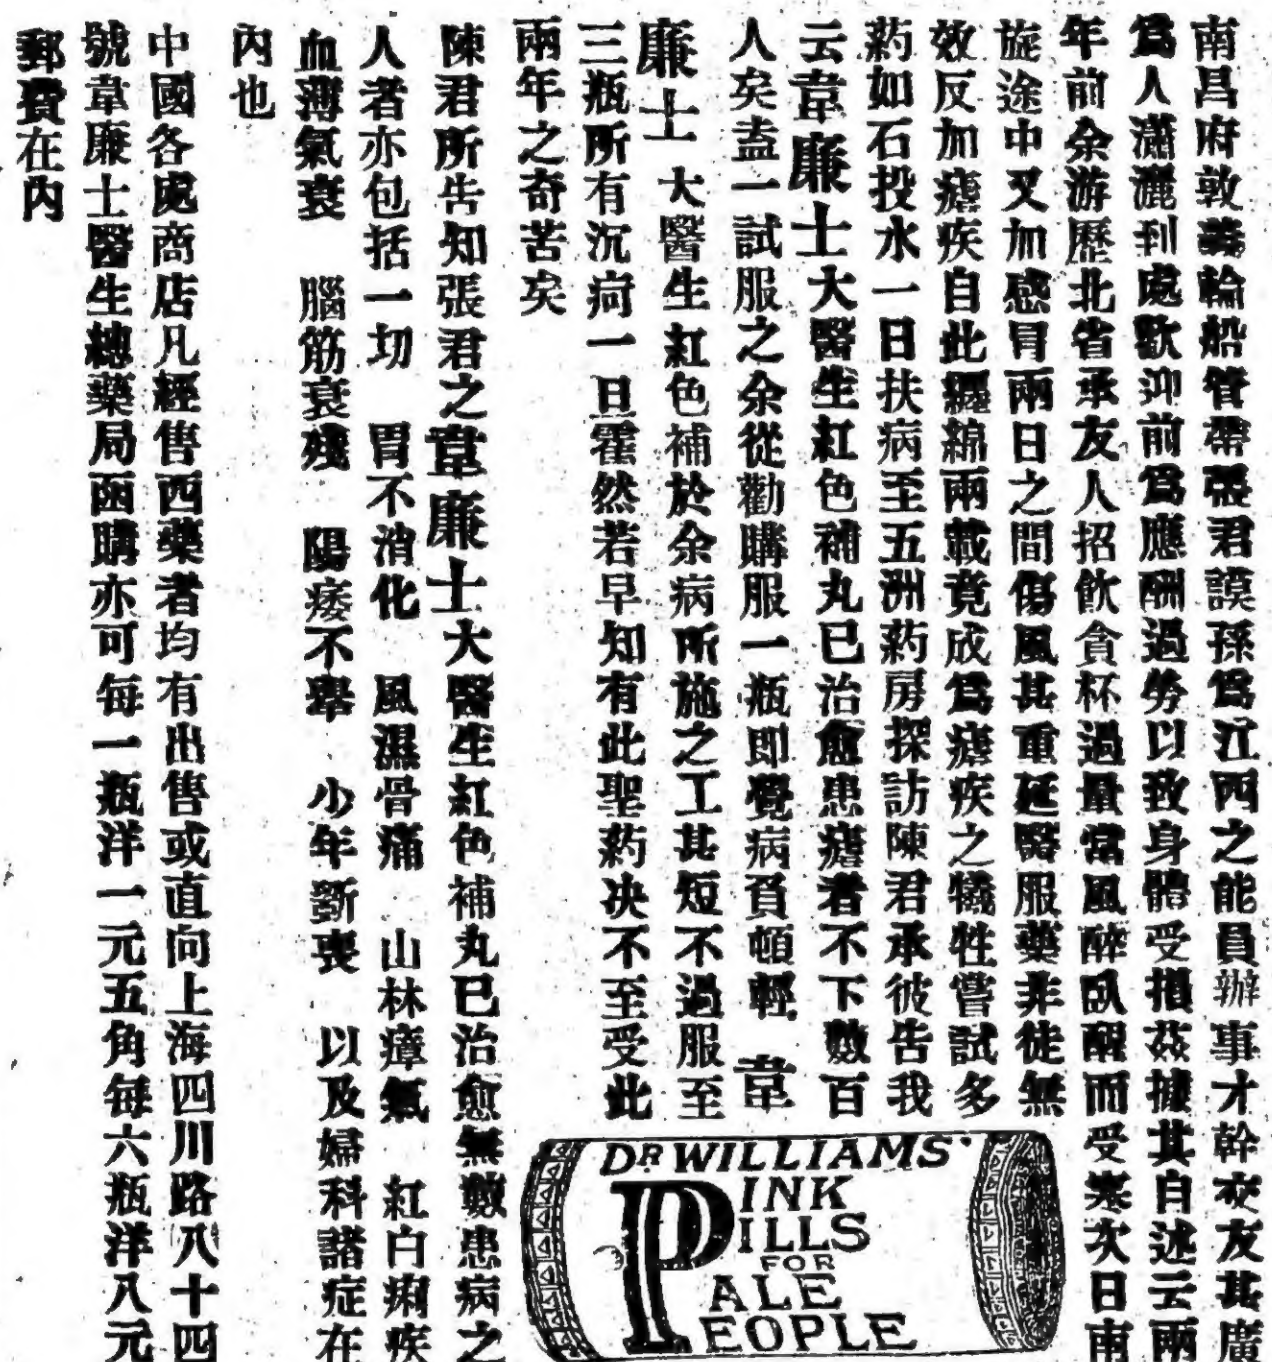 南昌府敦義輪船管帶張君謨孫爲江西之能員辦事才幹交友甚廣
爲人瀟灑到處歡迎前爲應酬過勞以致身體受損茲據其自述云兩
年前余游歷北省承友人招飲貪杯過量當風醉臥醒而受寒次日南
旋途中又加感冒兩日之間傷風甚重延醫服藥非徒無
效反加瘧疾自此纏綿兩載竟成爲瘧疾之犧牲嘗試多
葯如石投水一日扶病至五洲葯房探訪陳君承彼告我
云韋廉士大醫生紅色補丸已治愈患瘧者不下數百
人矣盍一試服之余從勸購服一瓶即覺病負頓輕 韋
廉士 大醫生紅色補於余病所施之工甚短不過服至
三瓶所有沉疴一旦霍然若早知有此聖葯决不至受此
兩年之奇苦矣
陳君所告知張君之韋廉士大醫生紅色補丸已治愈無數患病之
人者亦包括一切 胃不消化 風濕骨痛 山林瘴氣 紅白痢疾
血薄氣衰 腦筋衰殘 陽痿不舉 少年斲喪 以及婦科諸症在
內也
中國各處商店凡經售西藥者均有出售或直向上海四川路八十四
號韋廉士醫生總藥局函購亦可每一瓶洋一元五角每六瓶洋八元
郵費在內
DR WILLIAMS'
PINK
PILLS
FOR
PALE
PEOPLE